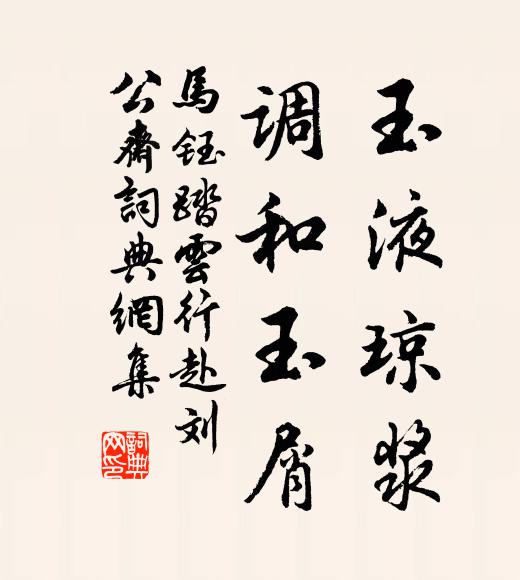 玉液琼浆
调和玉屑
馬鈺踏雲行赴刘
公齋詞典網集
詞典
网印